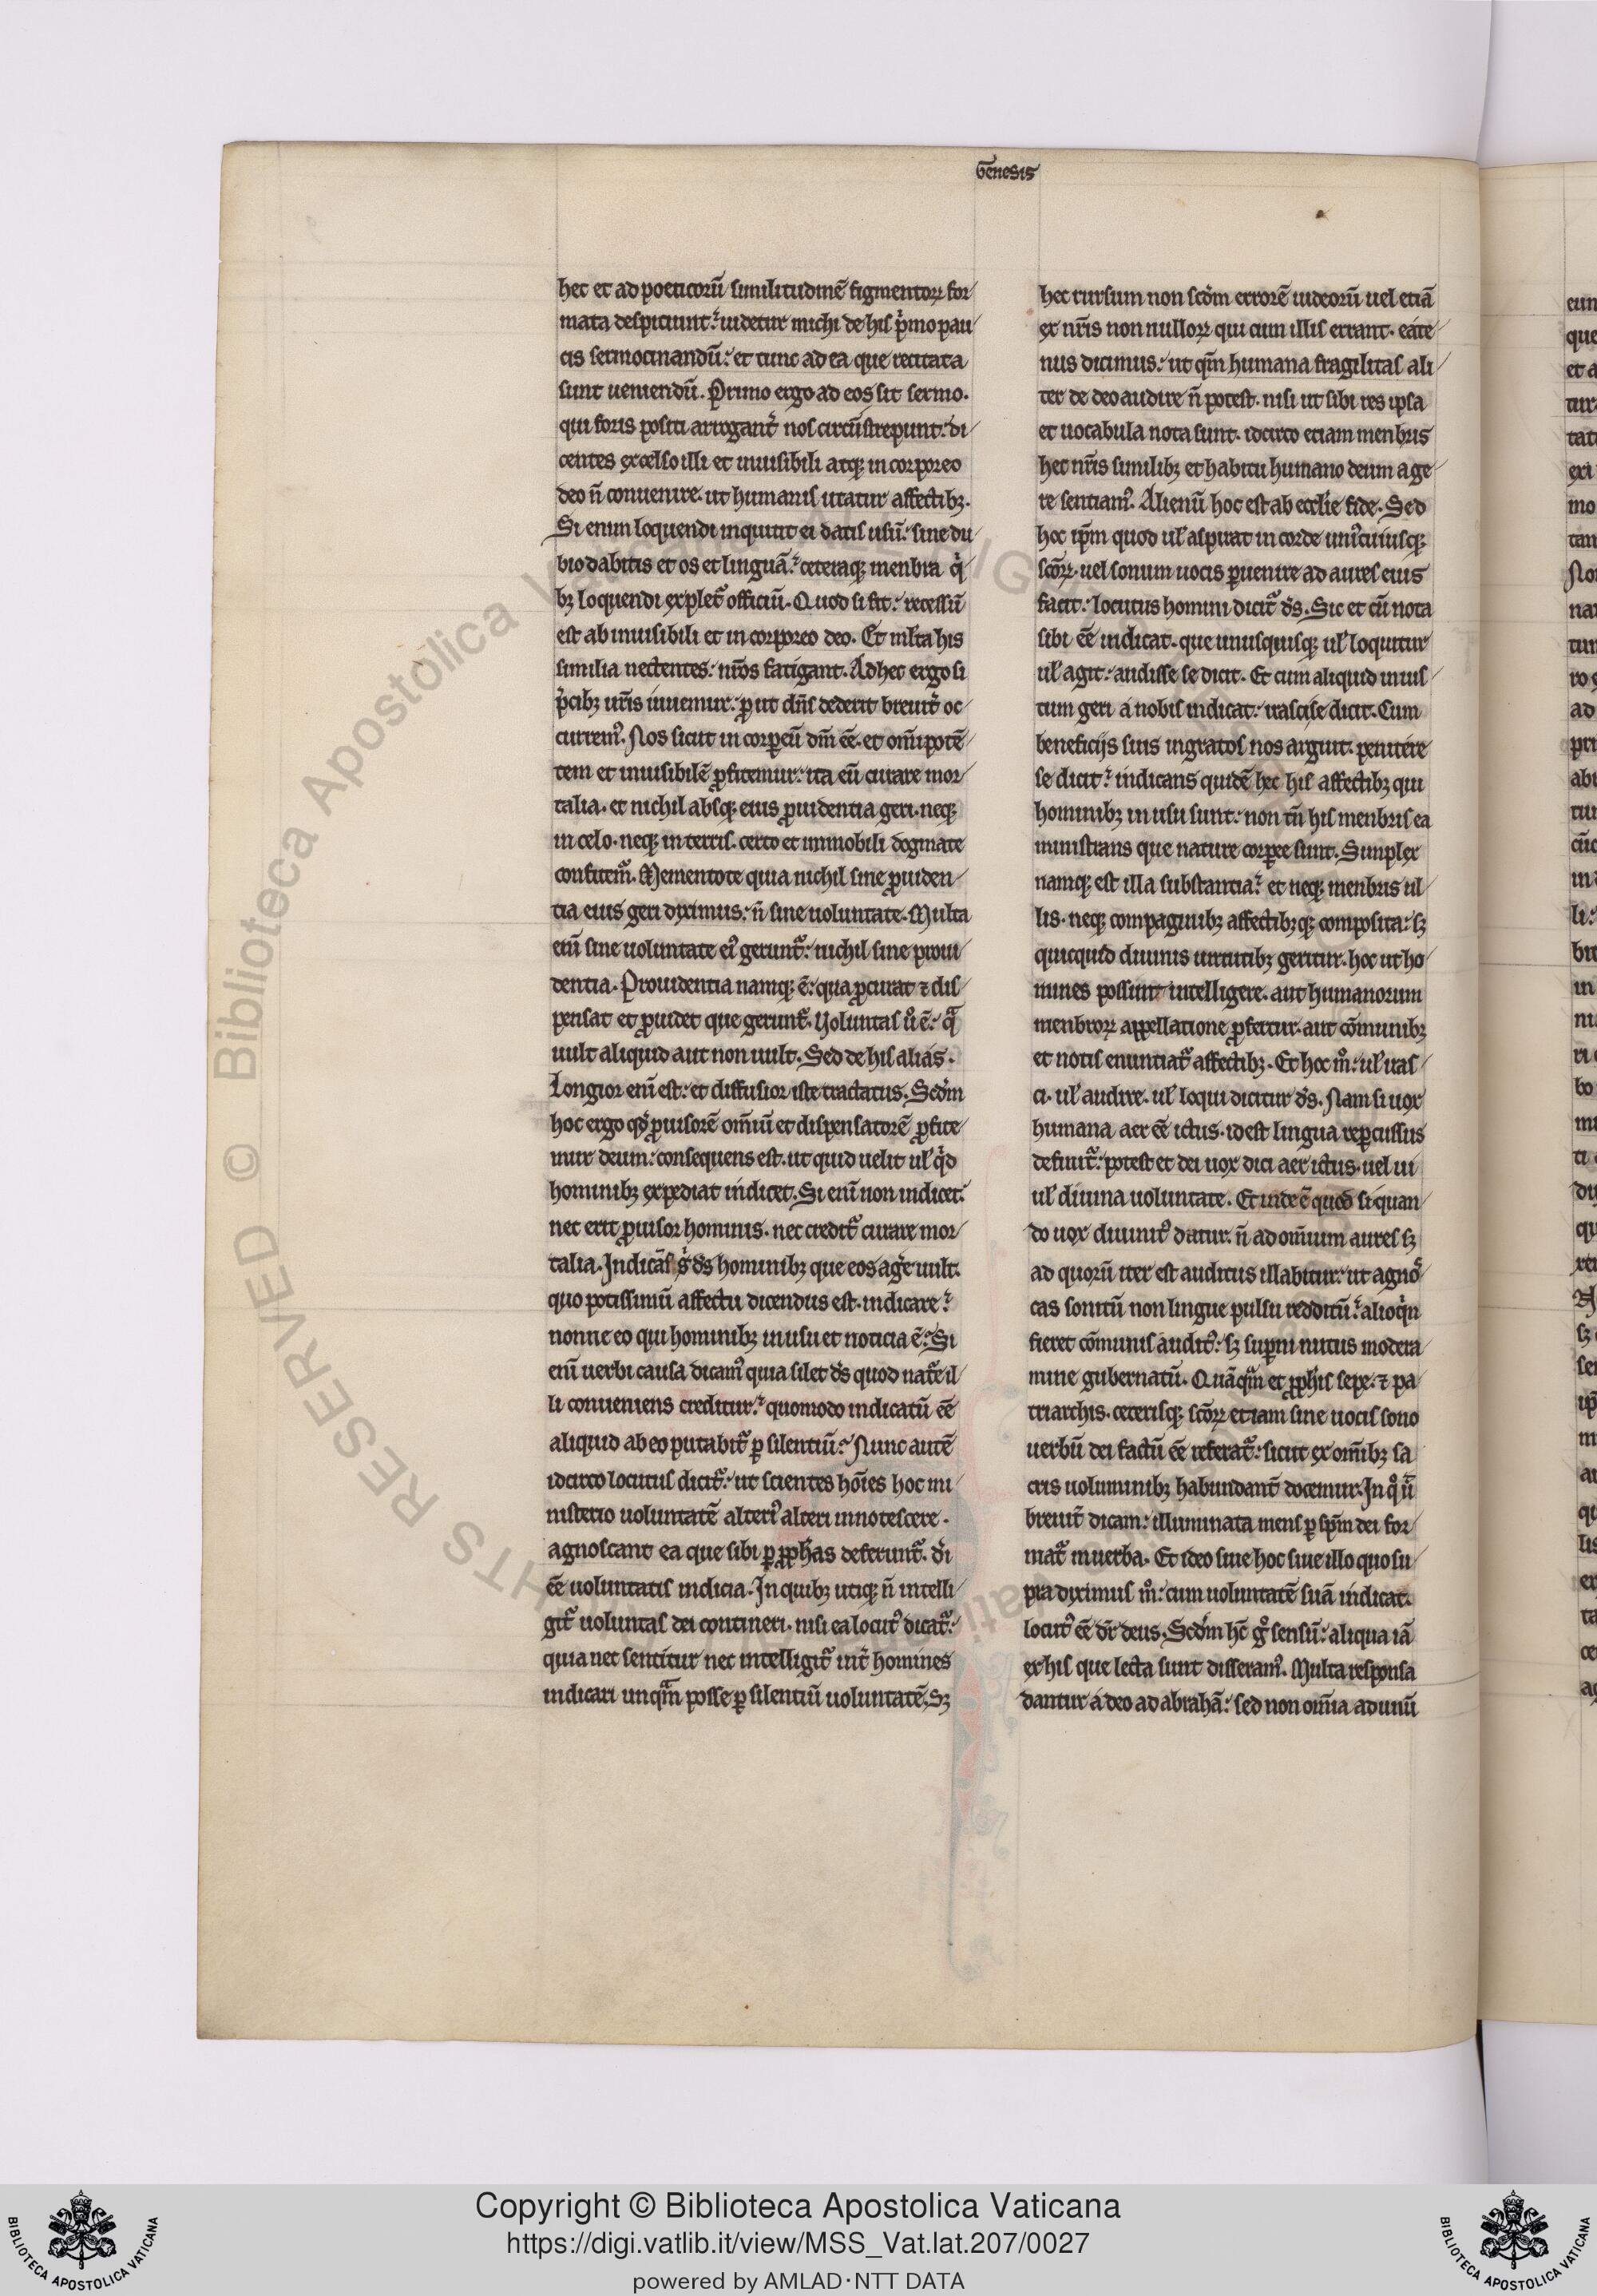 Genesis
hec et ad poeticorū similitudinē figmentoꝝ for
mata despiciunt: uidetur michi de his pͥmo pau
cis sermocinandū: et tunc ad ea que recitata
sunt ueniendū. Primo ergo ad eos sit sermo.
qui foris positi arrogant᷑ nos circūstrepunt: di
centes excelso illi et inuisibili atqꝫ incorporeo
deo n̄ conuenire. ut humanis utatur affectibꝫ.
Si enim loquendi inquiunt ei datis usū: sine du
bio dabitis et os et linguā: ceteraqꝫ menbra qͥ
bꝫ loquendi explet᷑ officiū. Quod si fit: recessū
est ab inuisibili et incorporeo deo. Et ml̄ta his
similia nectentes: nr̄os fatigant. Ad hec ergo si
p̄cibꝫ ur̄is iuuemur: ꝓut dn̄s dederit breuit᷑ oc
currem᷒. Nos sicut incorꝑeū dm̄ eē. et om̄ipotē
tem et inuisibilē ꝓfitemur: ita eū curare mor
talia. et nichil absqꝫ eius ꝓuidentia geri. neqꝫ
in celo. neqꝫ in terris. certo et immobili dogmate
confitem᷑. Mementote quia nichil sine ꝓuiden
tia eius geri diximus: n̄ sine uoluntate. Multa
eni̅ sine uoluntate ei᷒ gerunt᷑: nichil sine proui
dentia. Prouidentia namqꝫ ē: qua ꝓcurat ⁊ dis
pensat et ꝓuidet que gerunt᷑. Uoluntas uͦ ē: qͣ
uult aliquid aut non uult. Sed de his alias.
Longior eni̅ est: et diffusior iste tractatus. Scd̄m
hoc ergo qd̄ ꝓuisorē om̄iū et dispensatorē ꝓfite
mur deum: consequens est. ut quid uelit ul̄ qͥd
hominibꝫ expediat indicet. Si eni̅ non indicet:
nec erit ꝓuisor hominis. nec credit᷑ curare mor
talia. Indicās gͦ ds̄ hominibꝫ que eos age᷑ uult.
quo potissimū affectu dicendus est. indicare:
nonne eo qui hominibꝫ in usu et noticia ē: Si
eni̅ uerbi causa dicam᷒ quia silet ds̄ quod nat᷑e il
li conueniens creditur: quomodo indicatū eē
aliquid ab eo putabit᷑ ꝑ silentiū: Nunc autē
idcirco locutus dicit᷑: ut scientes hoīes hoc mi
nisterio uoluntatē alteri᷒ alteri innotescere.
agnoscant ea que sibi ꝑ ꝓph̄as deferunt᷑. dī
eē uoluntatis indicia. In quibꝫ utiqꝫ n̄ intelli
git᷑ uoluntas dei contineri. nisi ea locut᷒ dicat᷑:
quia nec sentitur nec intelligit᷑ int᷑ homines
indicari unqͣm posse ꝑ silentiū uoluntatē. Sꝫ
hec rursum non scd̄m errorē iudeorū uel etiā
ex nr̄is nonnulloꝝ qui cum illis errant. eate
nus dicimus: ut qm̄ humana fragilitas ali
ter de deo audire n̄ potest. nisi ut sibi res ipsa
et uocabula nota sunt. idcirco etiam menbris
hec nr̄is similibꝫ et habitu humano deum age
re sentiam᷒. Alienū hoc est ab ecclie fide. Sed
hoc ip̄m quod ul̄ aspirat in corde uni᷒cuiusqꝫ
scōꝝ. uel sonum uocis ꝑuenire ad aures eius
facit: locutus homini dicit᷑ ds̄. Sic et cū nota
sibi eē indicat. que unusquisqꝫ ul̄ loquitur
ul̄ agit: audisse se dicit. Et cum aliquid inius
tum geri a nobis indicat: irasci se dicit. Cum
beneficijs suis ingratos nos arguit. penitere
se dicit: indicans quidē hec his affectibꝫ qui
hominibꝫ in usu sunt: non tn̄ his menbris ea
ministrans que nature corꝑee sunt. Simplex
namqꝫ est illa substantia: et neqꝫ menbris ul
lis. neqꝫ compaginibꝫ affectibꝫqꝫ composita: sꝫ
quicquid diuinis uirtutibꝫ geritur. hoc ut ho
mines possunt intelligere. aut humanorum
menbroꝝ appellatione ꝓfertur. aut cōmunibꝫ
et notis enuntiat᷑ affectibꝫ. Et hoc mͦ: ul̄ iras
ci. ul̄ audire. ul̄ loqui dicitur ds̄. Nam si uox
humana aer eē ictus. id est lingua reꝑcussus
definit᷑: potest et dei uox dici aer ictus. uel ui
ul̄ diuina uoluntate. Et inde ē quod si quan
do uox diuinit᷒ datur. n̄ ad om̄ium aures sꝫ
ad quorū iter est auditus illabitur: ut agnos
cas sonitū non lingue pulsu redditū: alioqͥn
fieret cōmunis audit᷒: sꝫ suꝑni nutus modera
mine gubernatū. Quāqͣm et ꝓph̄is sepe. ⁊ pa
triarchis. ceterisqꝫ scōꝝ etiam sine uocis sono
uerbū dei factū eē referat᷑: sicut ex om̄ibꝫ sa
cris uoluminibꝫ habundant᷑ docemur. In qͦ ut̄
breuit᷑ dicam: illuminata mens ꝑ sp̄m dei for
mat᷑ in uerba. Et ideo siue hoc siue illo quo su
pra diximus mͦ: cum uoluntatē suā indicat.
locut᷒ eē dr̄ deus. Scd̄m hc̄ gͦ sensū: aliqua iā
ex his que lecta sunt disseram᷒. Multa responsa
dantur a deo ad abrahā: sed non om̄ia ad unū
Copyright © Biblioteca Apostolica Vaticana
https://digi.vatlib.it/view/MSS_Vat.lat.207/0027
powered by AMLAD·NTT DATA